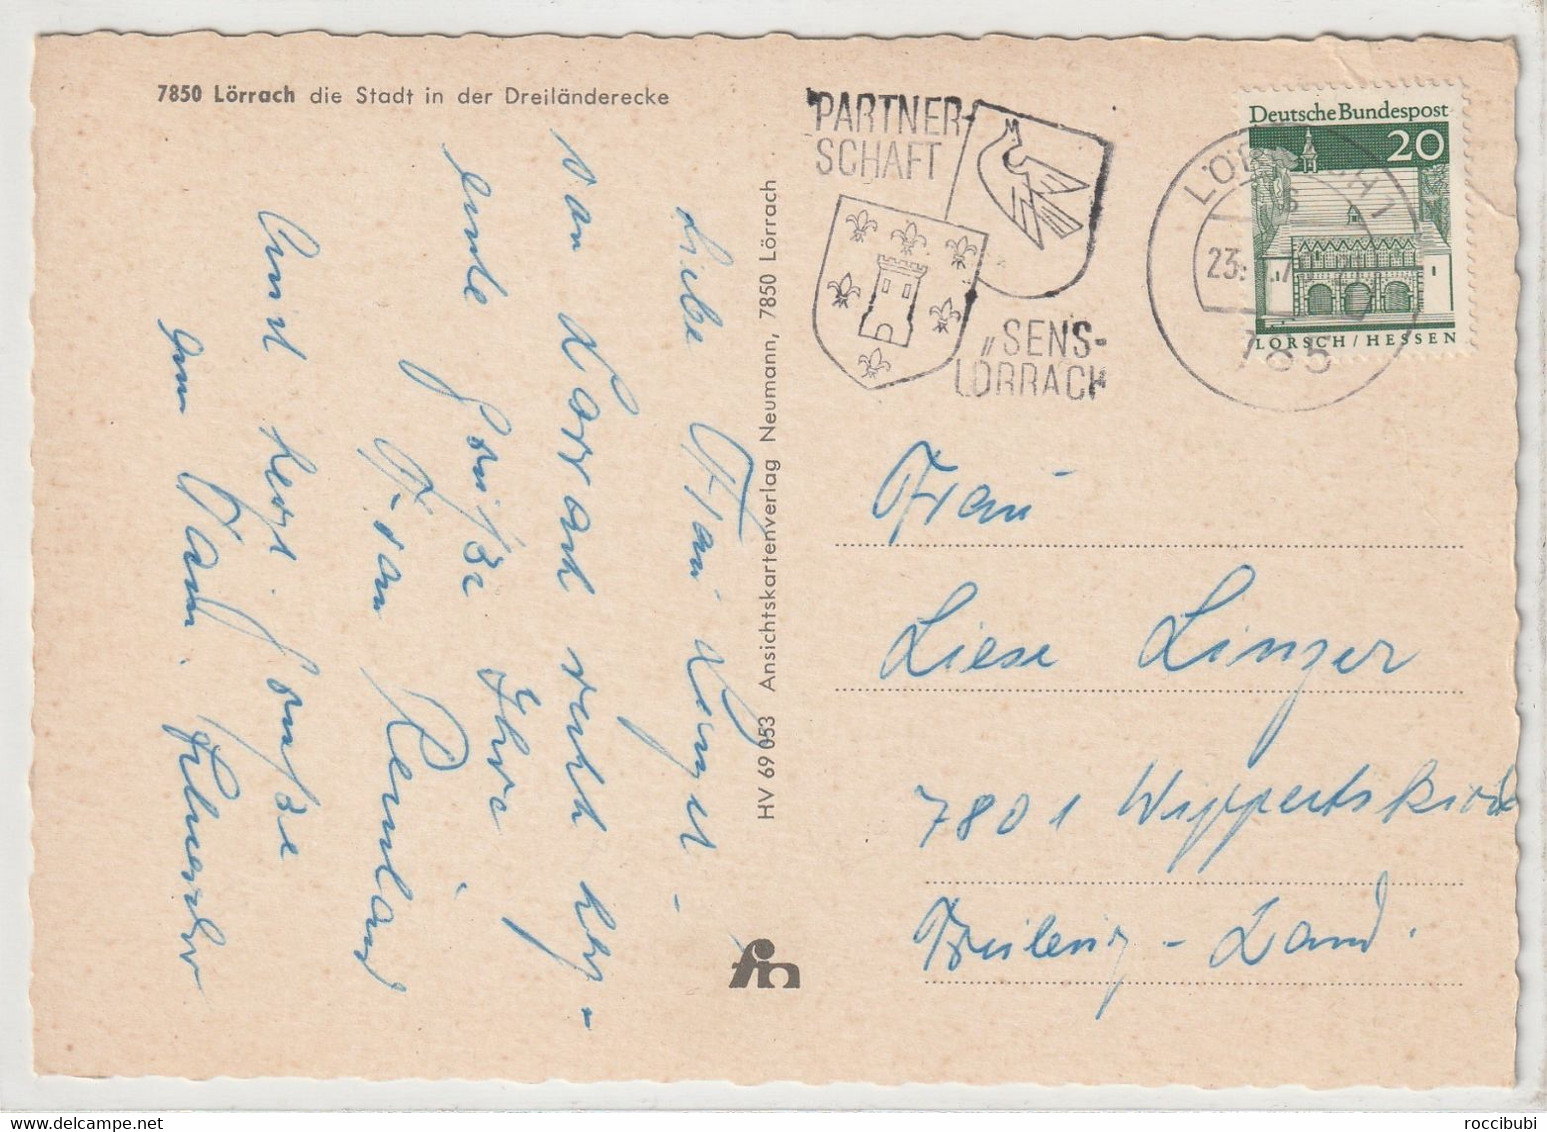 7850 Lörrach die Stadt in der Dreiländerecke
PARTNER-
SCHAFT
„SENS-
LÖRRACH
LÖRRACH 1
23.
785
Deutsche Bundespost
20
LORSCH/HESSEN
Liebe Frau Linger
von Lörrach recht herz-
Grüße Ihre
Frau
Und herzl. Grüße
Frau
Liese Linzer
7801 Wippertskirch
Freiburg-Land.
HV 69 053 Ansichtskartenverlag Neumann, 7850 Lörrach
fn
roccibubi